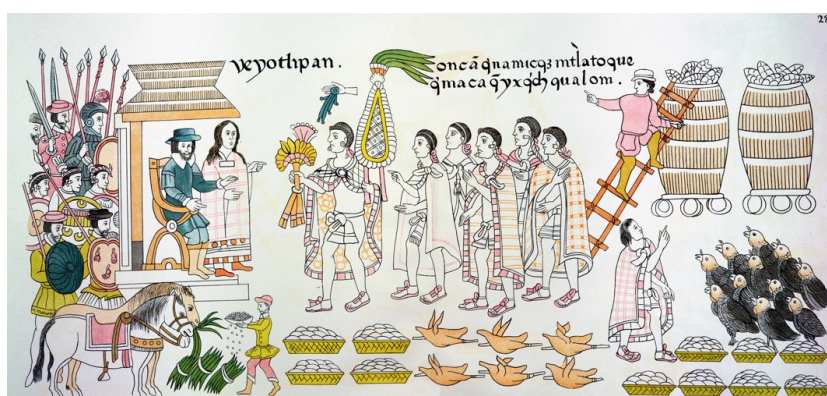 28
veyotlipan.
oncã q̃namicqȝ intlatoque
q̃maca q̃yxq̃ch qualoni.